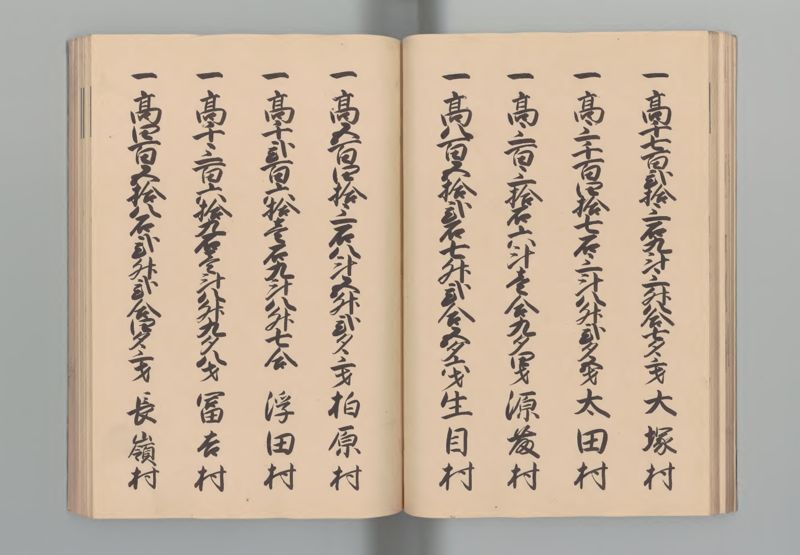 一高千七百弐拾三石九斗三升八合七夕三才大塚村
一高三千百四拾七石三斗八升弐夕五才太田村
一高三百三拾石六斗壱合九夕四才源藤村
一高八百五拾弐石七升弐合五夕六才生目村
一高五百四拾三石八斗五升弐夕三才柏原村
一高千弐百六拾壱石九斗八升七合浮田村
一高千三百六拾五石壱斗八升九夕八才冨吉村
一高四百五拾八石弐升弐合四夕三才長嶺村